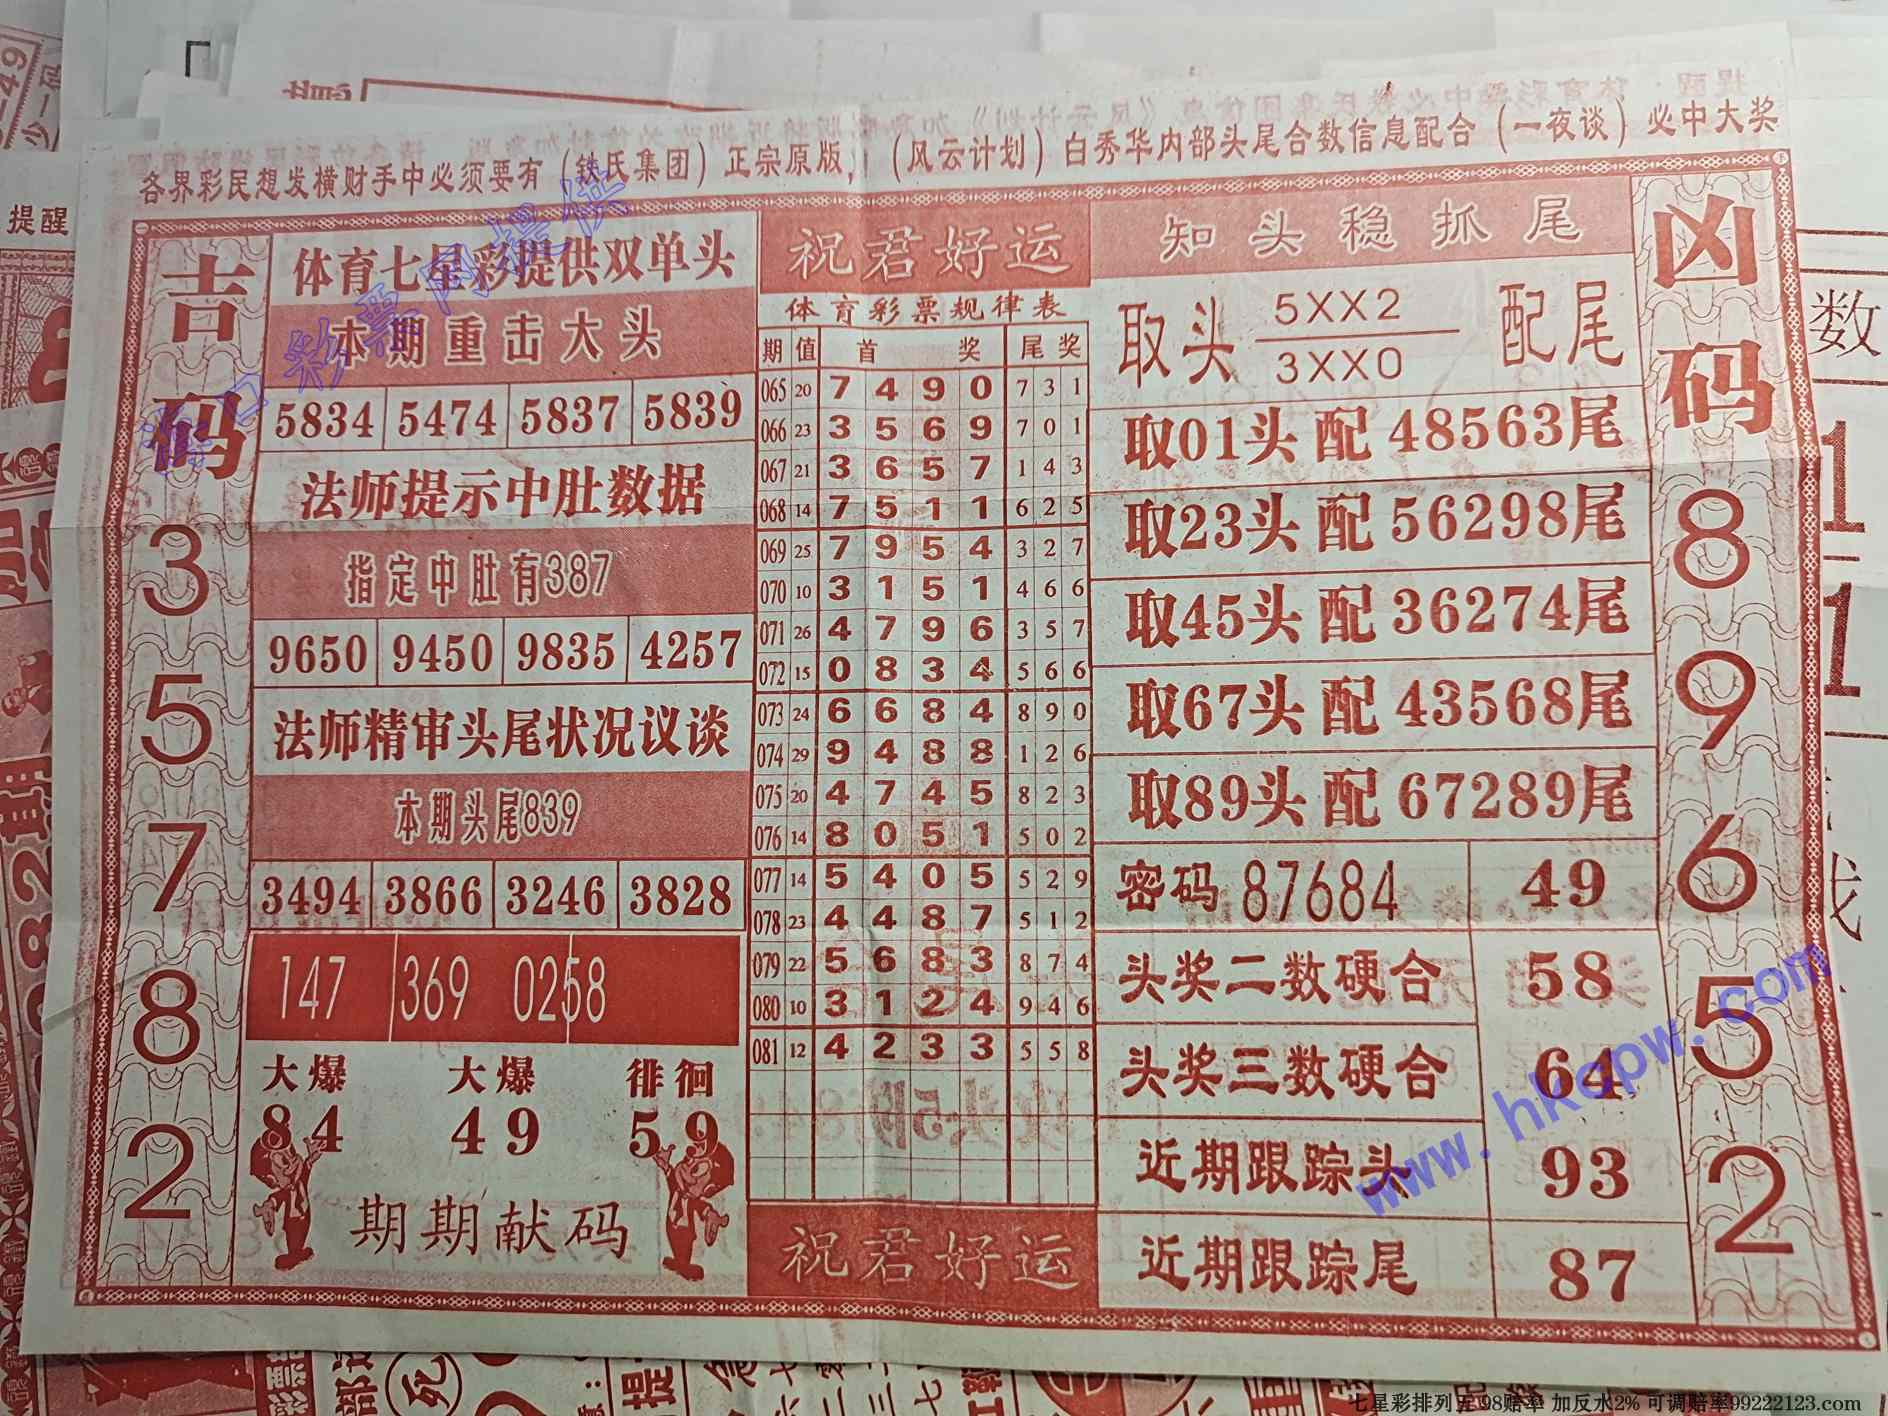 各界彩民想发横财手中必须要有（铁氏集团）正宗原版，（风云计划）白秀华内部头尾合数信息配合（一夜谈）必中大奖
提醒
吉码
3
5
7
8
2
体育七星彩提供双单头
本期重击大头
5834 5474 5837 5839
法师提示中肚数据
指定中肚有387
9650 9450 9835 4257
法师精审头尾状况议谈
本期头尾839
3494 3866 3246 3828
147 369 0258
大爆 大爆 徘徊
84 49 59
期期献码
祝君好运
体育彩票规律表
期 值 首 奖 尾 奖
065 20 7 4 9 0 7 3 1
066 23 3 5 6 9 7 0 1
067 21 3 6 5 7 1 4 3
068 14 7 5 1 1 6 2 5
069 25 7 9 5 4 3 2 7
070 10 3 1 5 1 4 6 6
071 26 4 7 9 6 3 5 7
072 15 0 8 3 4 5 6 6
073 24 6 6 8 4 8 9 0
074 29 9 4 8 8 1 2 6
075 20 4 7 4 5 8 2 3
076 14 8 0 5 1 5 0 2
077 14 5 4 0 5 5 2 9
078 23 4 4 8 7 5 1 2
079 22 5 6 8 3 8 7 4
080 10 3 1 2 4 9 4 6
081 12 4 2 3 3 5 5 8
祝君好运
知头稳抓尾
取头 5XX2 配尾
3XX0
取01头 配 48563尾
取23头 配 56298尾
取45头 配 36274尾
取67头 配 43568尾
取89头 配 67289尾
密码 87684 49
头奖二数硬合 58
头奖三数硬合 64
近期跟踪头 93
近期跟踪尾 87
凶码
8
9
6
5
2
数
海口彩票网提供
www.hkcpw.com
七星彩排列五 98赔率 加反水2% 可调赔率99222123.com